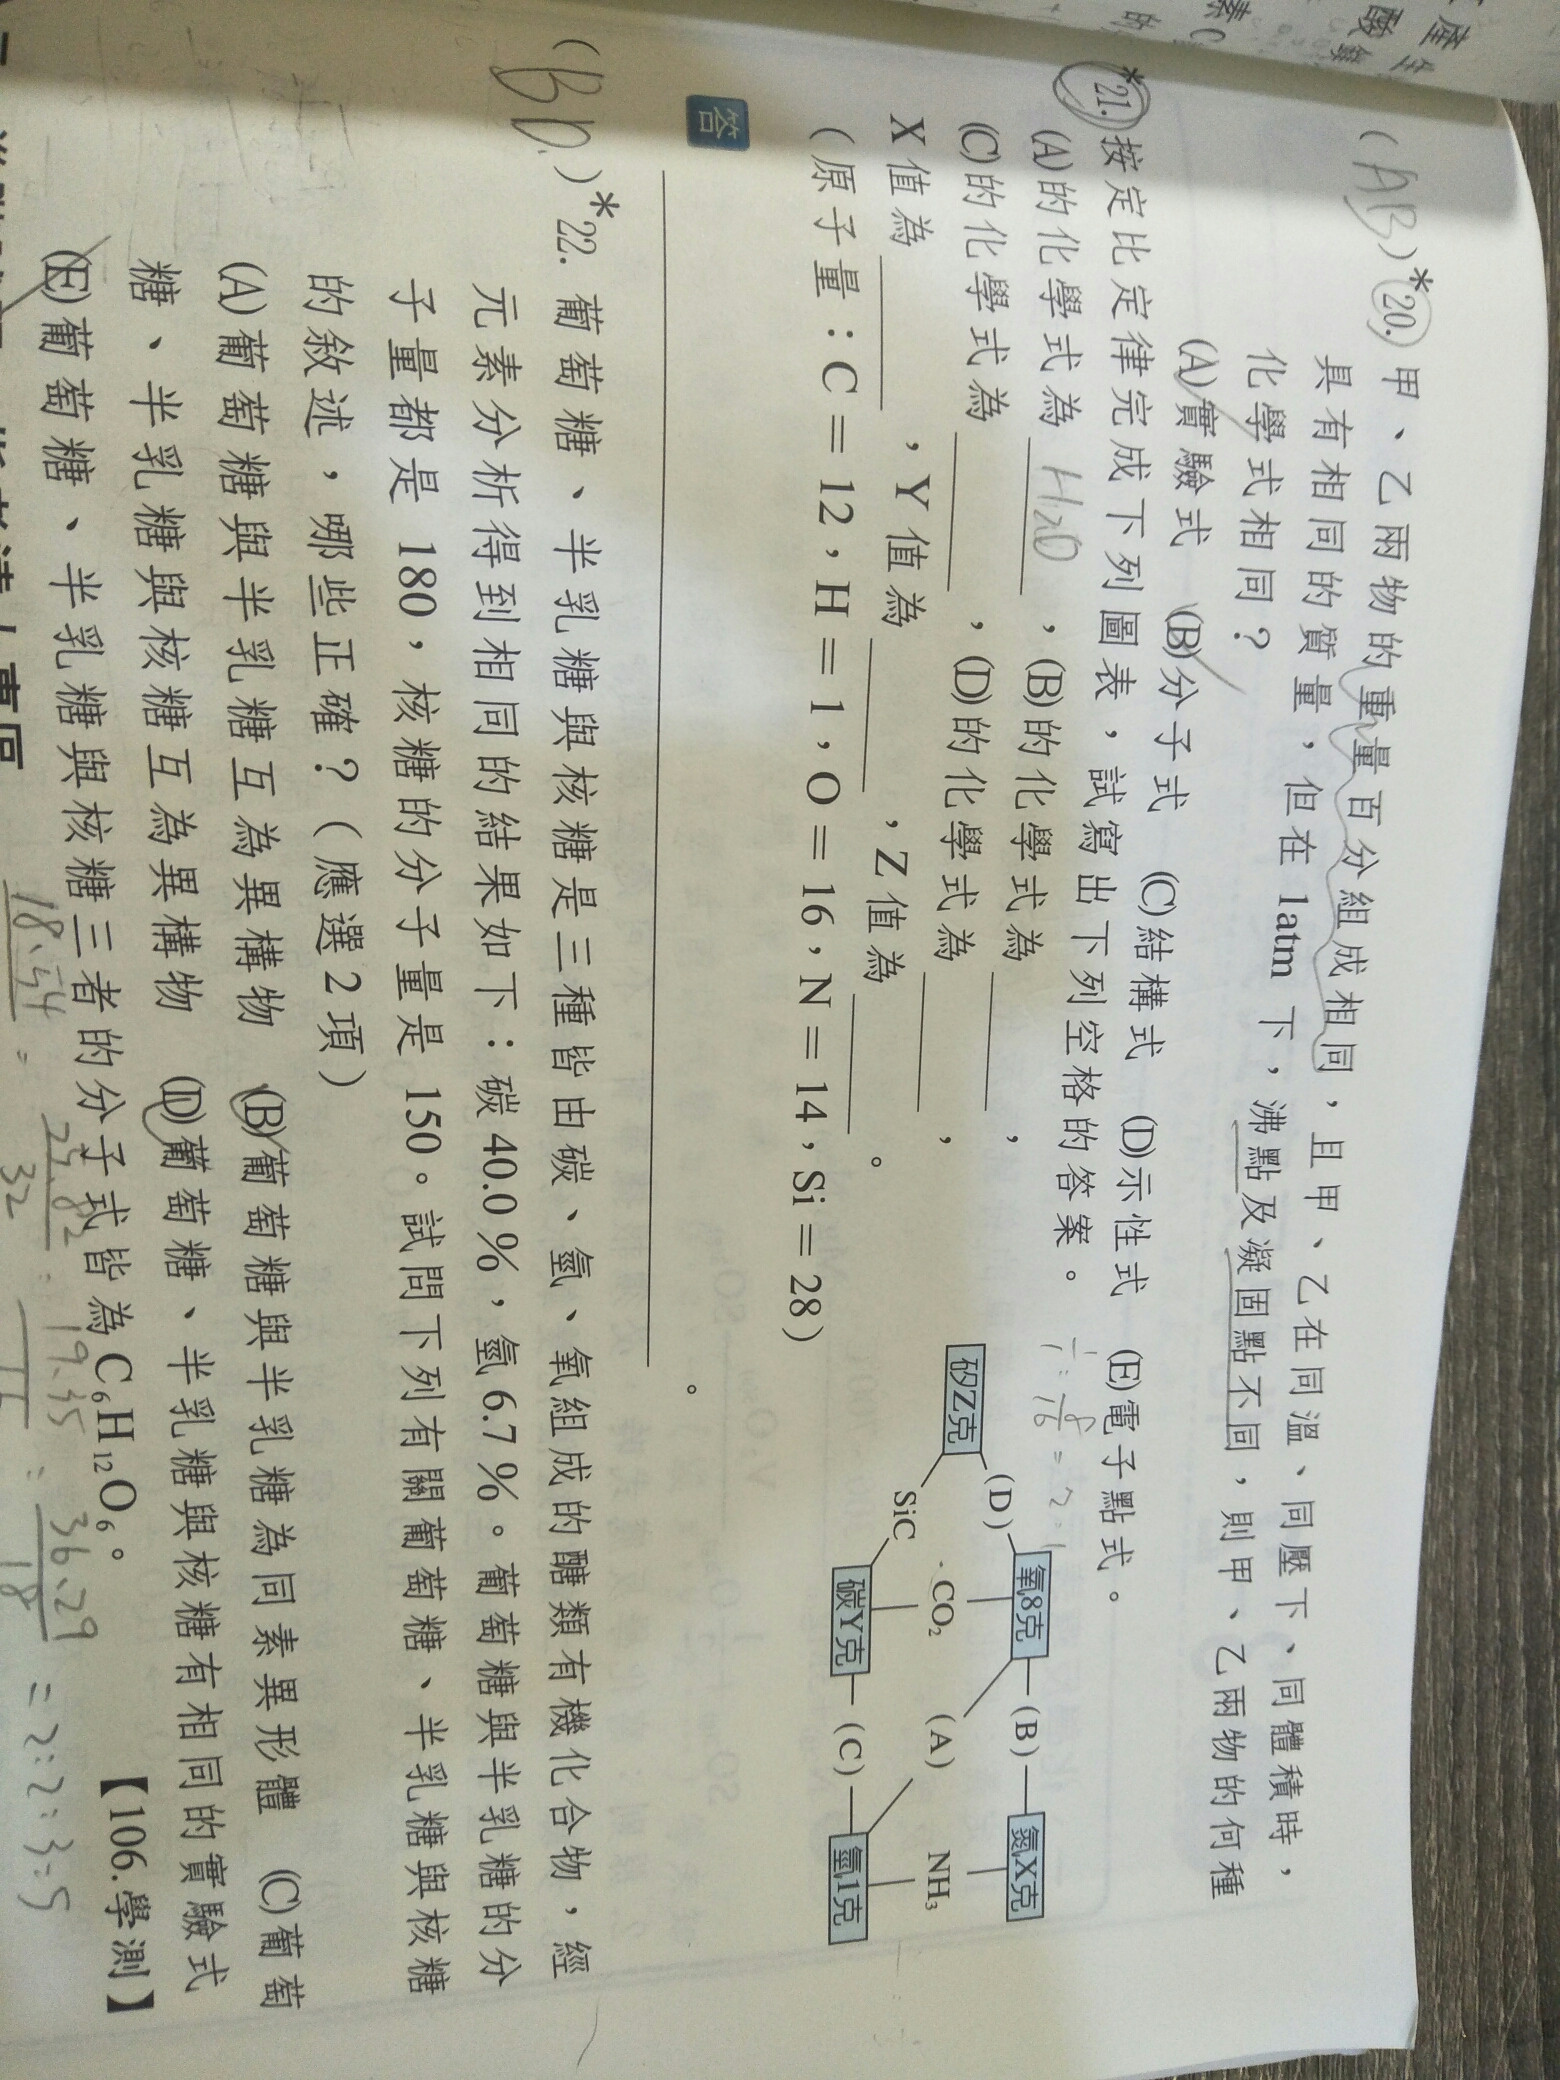 (AB)*20. 甲、乙兩物的重量百分組成相同，且甲、乙在同溫、同壓下、同體積時，
具有相同的質量，但在 1atm 下，沸點及凝固點不同，則甲、乙兩物的何種
化學式相同？
(A)實驗式 (B)分子式 (C)結構式 (D)示性式 (E)電子點式。
*21. 按定比定律完成下列圖表，試寫出下列空格的答案。
(A)的化學式為 H₂O ，(B)的化學式為 ，
(C)的化學式為 ，(D)的化學式為 ，
X 值為 ，Y 值為 ，Z 值為 。
(原子量：C = 12，H = 1，O = 16，N = 14，Si = 28)
矽Z克
(D)
氧8克
(B)
氮X克
SiC
CO₂
(A)
NH₃
碳Y克
(C)
氫1克
答 。
(BD)*22. 葡萄糖、半乳糖與核糖是三種皆由碳、氫、氧組成的醣類有機化合物，經
元素分析得到相同的結果如下：碳 40.0 %，氫 6.7 %。葡萄糖與半乳糖的分
子量都是 180，核糖的分子量是 150。試問下列有關葡萄糖、半乳糖與核糖
的敘述，哪些正確？(應選 2 項)
(A)葡萄糖與半乳糖互為異構物 (B)葡萄糖與半乳糖為同素異形體 (C)葡萄
糖、半乳糖與核糖互為異構物 (D)葡萄糖、半乳糖與核糖有相同的實驗式
(E)葡萄糖、半乳糖與核糖三者的分子式皆為 C₆H₁₂O₆。
【106.學測】